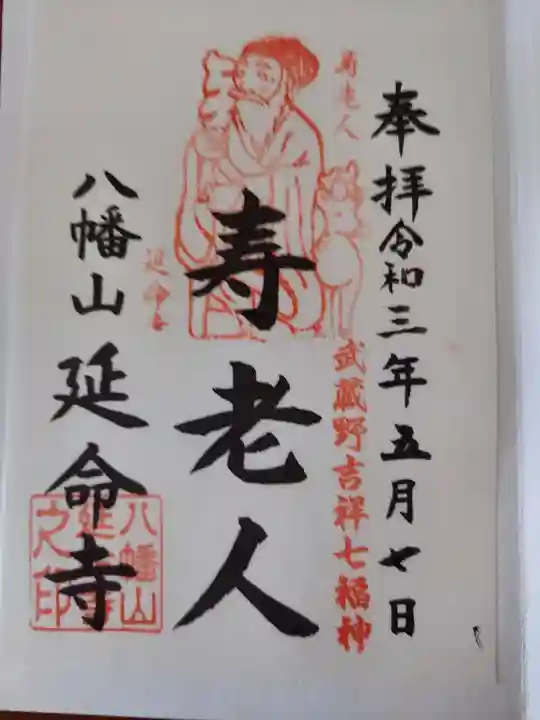 奉拝令和三年五月七日
武蔵野吉祥七福神
寿老人
寿老人
延命寺
八幡山延命寺
八幡山延命寺之印